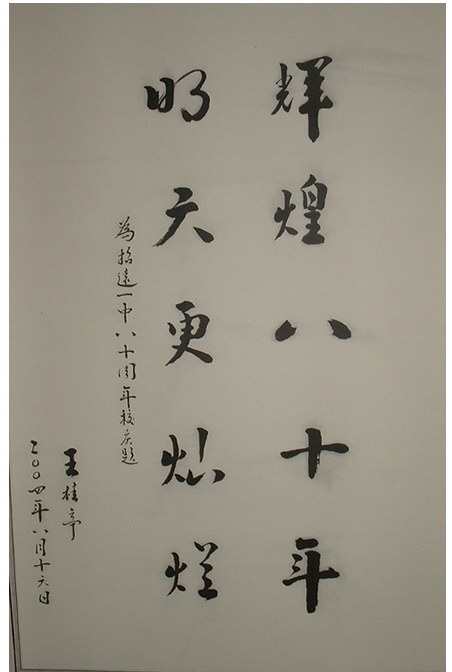 辉煌八十年
明天更灿烂
为招远一中八十周年校庆题
王桂亭
二〇〇四年八月十六日